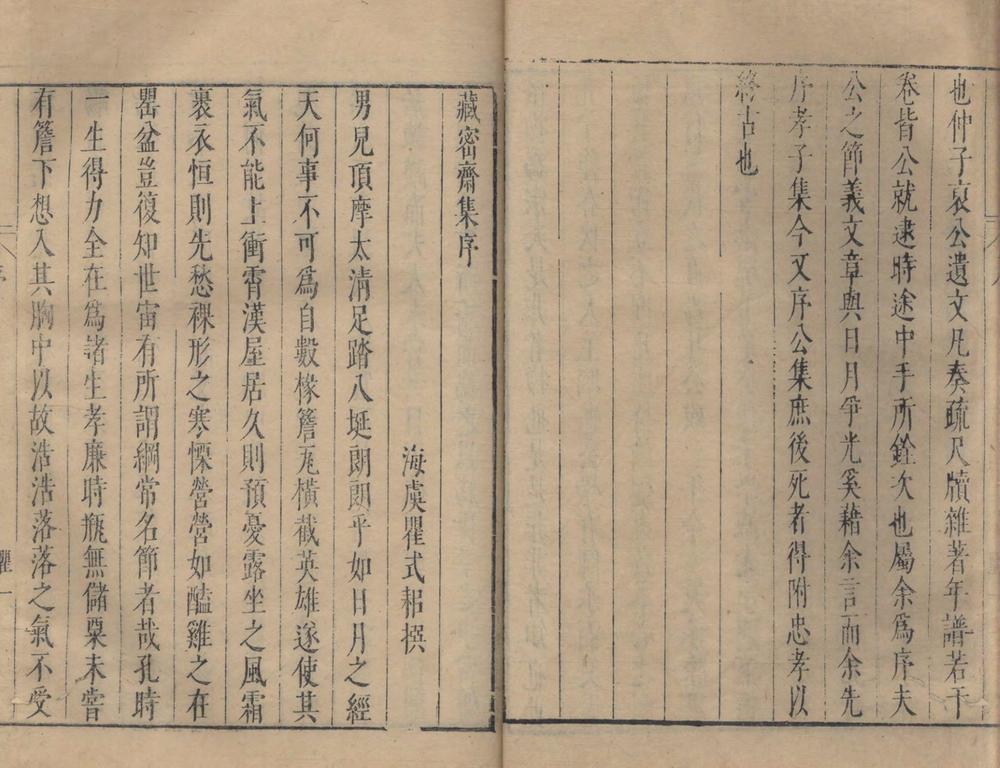 也仲子哀公遺文凡奏疏尺牘雜著年譜若干
卷皆公就逮時途中手所銓次也屬余爲序夫
公之節義文章與日月爭光奚藉余言而余先
序孝子集今又序公集庶後死者得附忠孝以
終古也
藏密齋集序
海虞瞿式耜撰
男兒頂摩太清足踏八埏朗朗乎如日月之經
天何事不可爲自數椽簷瓦橫截英雄遂使其
氣不能上衝霄漢屋居久則預憂露坐之風霜
裹衣恒則先愁裸形之寒慄營營如醯雞之在
罌盆豈復知世宙有所謂綱常名節者哉孔時
一生得力全在爲諸生孝廉時甁無儲粟未嘗
有簷下想入其胸中以故浩浩落落之氣不受